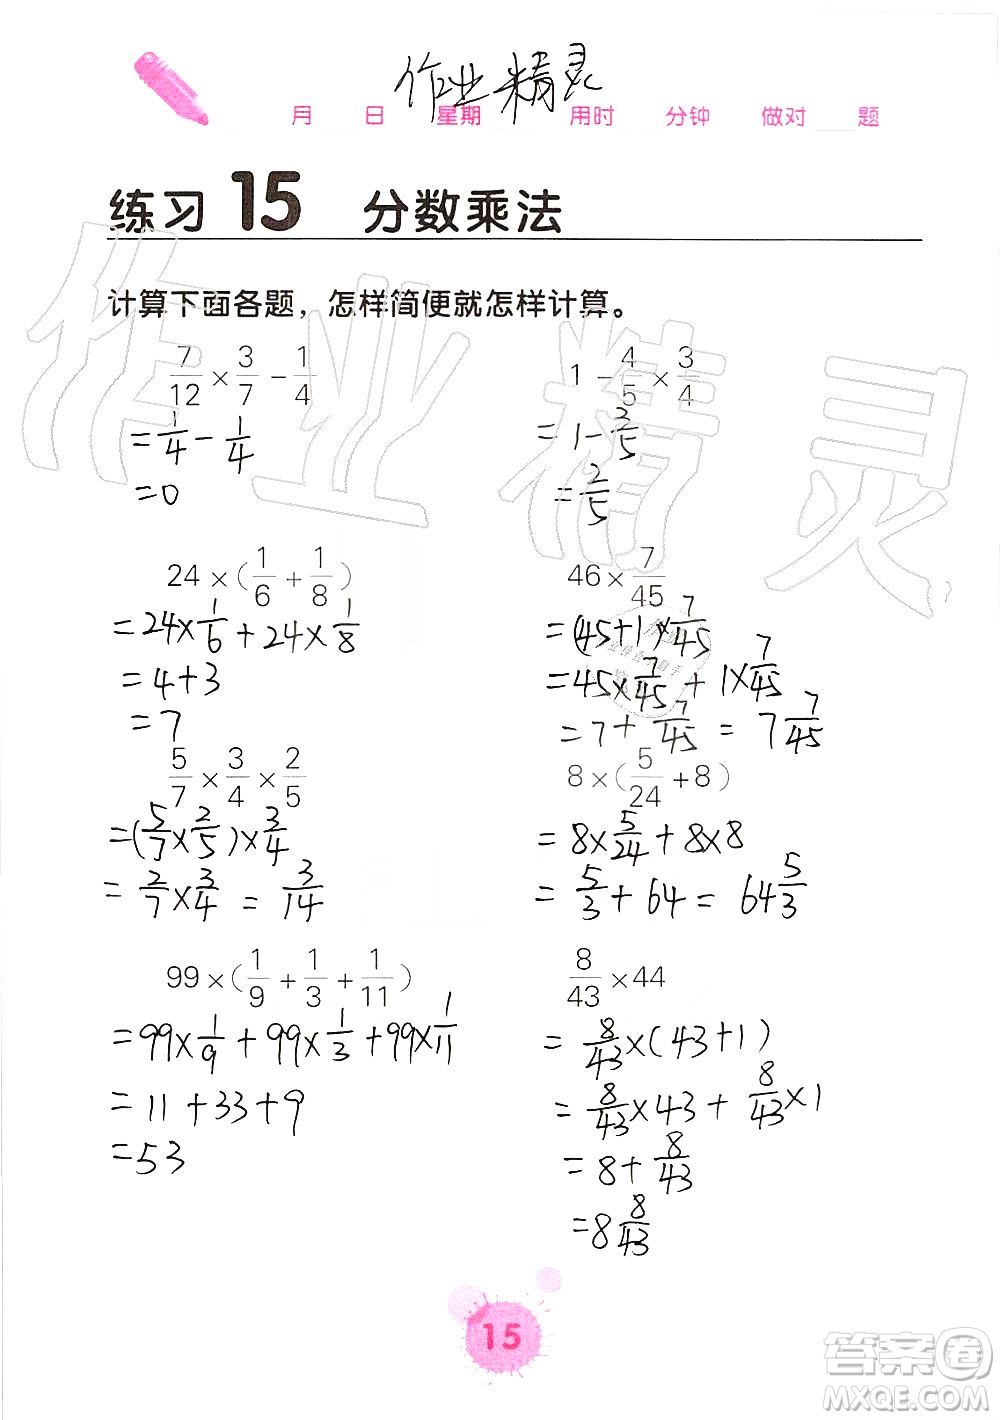 作业精灵
月 日 星期 用时 分钟 做对 题
练习 15 分数乘法
计算下面各题，怎样简便就怎样计算。
7/12 × 3/7 − 1/4
= 1/4 − 1/4
= 0
1 − 4/5 × 3/4
= 1 − 3/5
= 2/5
24 × (1/6 + 1/8)
= 24 × 1/6 + 24 × 1/8
= 4 + 3
= 7
46 × 7/45
= (45+1) × 7/45
= 45 × 7/45 + 1 × 7/45
= 7 + 7/45 = 7 7/45
5/7 × 3/4 × 2/5
= (5/7 × 2/5) × 3/4
= 2/7 × 3/4 = 3/14
8 × (5/24 + 8)
= 8 × 5/24 + 8 × 8
= 5/3 + 64 = 64 5/3
99 × (1/9 + 1/3 + 1/11)
= 99 × 1/9 + 99 × 1/3 + 99 × 1/11
= 11 + 33 + 9
= 53
8/43 × 44
= 8/43 × (43 + 1)
= 8/43 × 43 + 8/43 × 1
= 8 + 8/43
= 8 8/43
15
作业精灵
答案圈
MXQE.COM